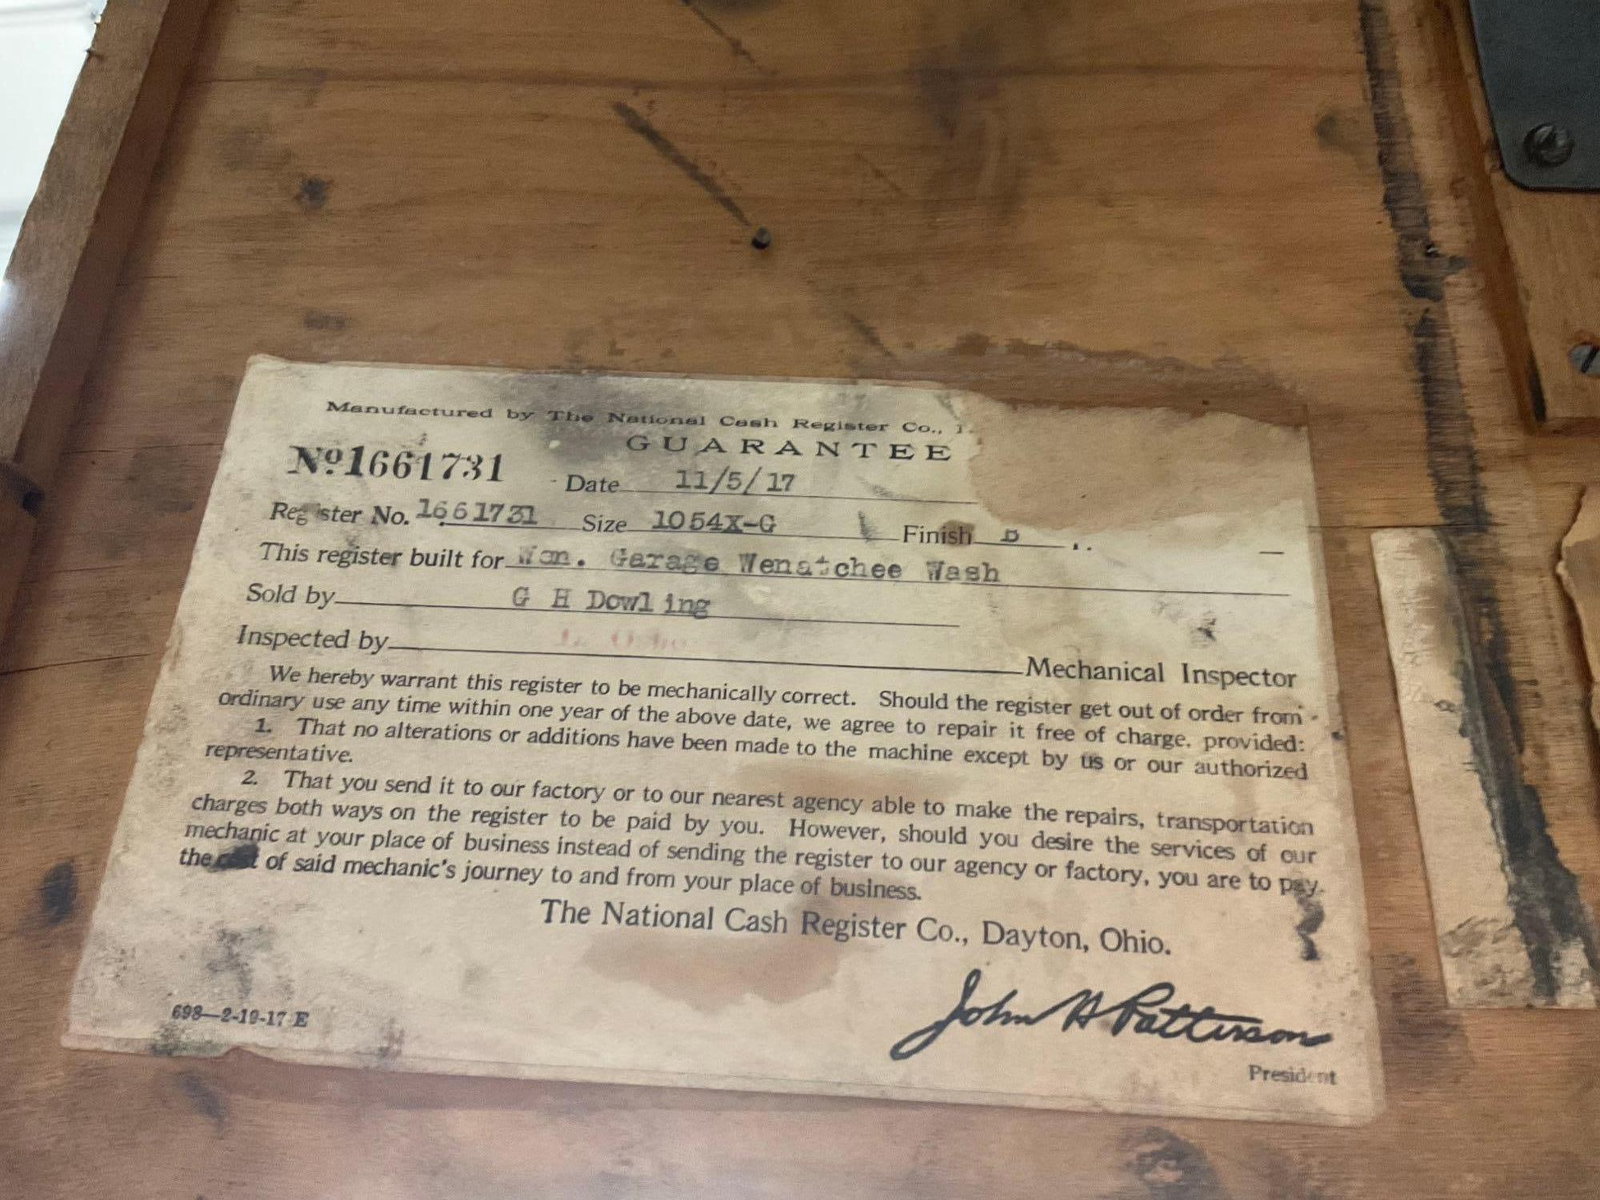 Manufactured by The National Cash Register Co.,
GUARANTEE
No. 1661731 Date 11/5/17
Register No. 1661731 Size 1054X-G Finish
This register built for Garage Wenatchee Wash
Sold by G H Dowling
Inspected by Mechanical Inspector
We hereby warrant this register to be mechanically correct. Should the register get out of order from
ordinary use any time within one year of the above date, we agree to repair it free of charge. provided:
1. That no alterations or additions have been made to the machine except by us or our authorized
representative.
2. That you send it to our factory or to our nearest agency able to make the repairs, transportation
charges both ways on the register to be paid by you. However, should you desire the services of our
mechanic at your place of business instead of sending the register to our agency or factory, you are to pay
the cost of said mechanic's journey to and from your place of business.
The National Cash Register Co., Dayton, Ohio.
John H Patterson
698—2-19-17 E
President